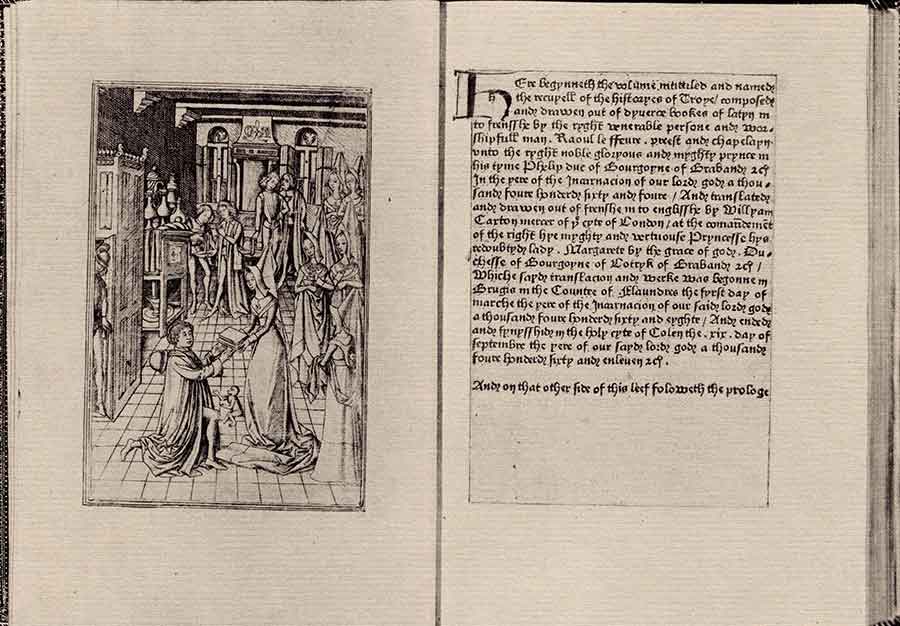 HEre begynneth the volume intituled and named
the recuyell of the historyes of Troye / composed
and drawen out of dyuerce bookes of latyn in
to frensshe by the ryght venerable persone and wor-
shipfull man . Raoul le ffeure . preest and chapelayn
vnto the ryght noble gloryous and myghty prynce in
his tyme Phelip duc of Bourgoyne of Braband &c
In the yere of the Incarnacion of our lord god a thou-
sand foure honderd sixty and foure / And translated
and drawen out of frenshe in to englisshe by Willyam
Caxton mercer of yͤ cyte of London / at the comaũdemẽt
of the right hye myghty and vertuouse Pryncesse hys
redoubtyd lady . Margarete by the grace of god . Du-
chesse of Bourgoyne of Lotryk of Braband &c /
Whiche sayd translacion and werke was begonne in
Brugis in the Countre of Flaundres the fyrst day of
marche the yere of the Incarnacion of our said lord god
a thousand foure honderd sixty and eyghte / And ended
and fynysshid in the holy cyte of Colen the . xix . day of
septembre the yere of our sayd lord god a thousand
foure honderd sixty and enleuen &c .
And on that other side of this leef foloweth the prologe